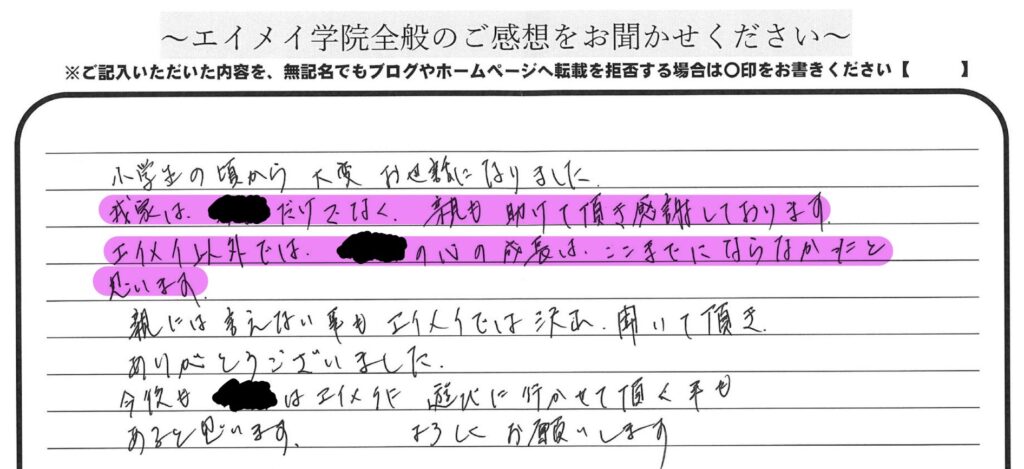 ～エイメイ学院全般のご感想をお聞かせください～
※ご記入いただいた内容を、無記名でもブログやホームページへ転載を拒否する場合は〇印をお書きください【　　】
小学生の頃から 大変 お世話になりました.
我家は、 だけでなく、 親も 助けて頂き感謝しております.
エイメイ以外では、 の心の成長は、ここまでにならなかったと
思います.
親には言えない事も エイメイでは沢山、聞いて頂き.
ありがとうございました.
今後も はエイメイに 遊びに行かせて頂く事も
あると思います. よろしくお願いします